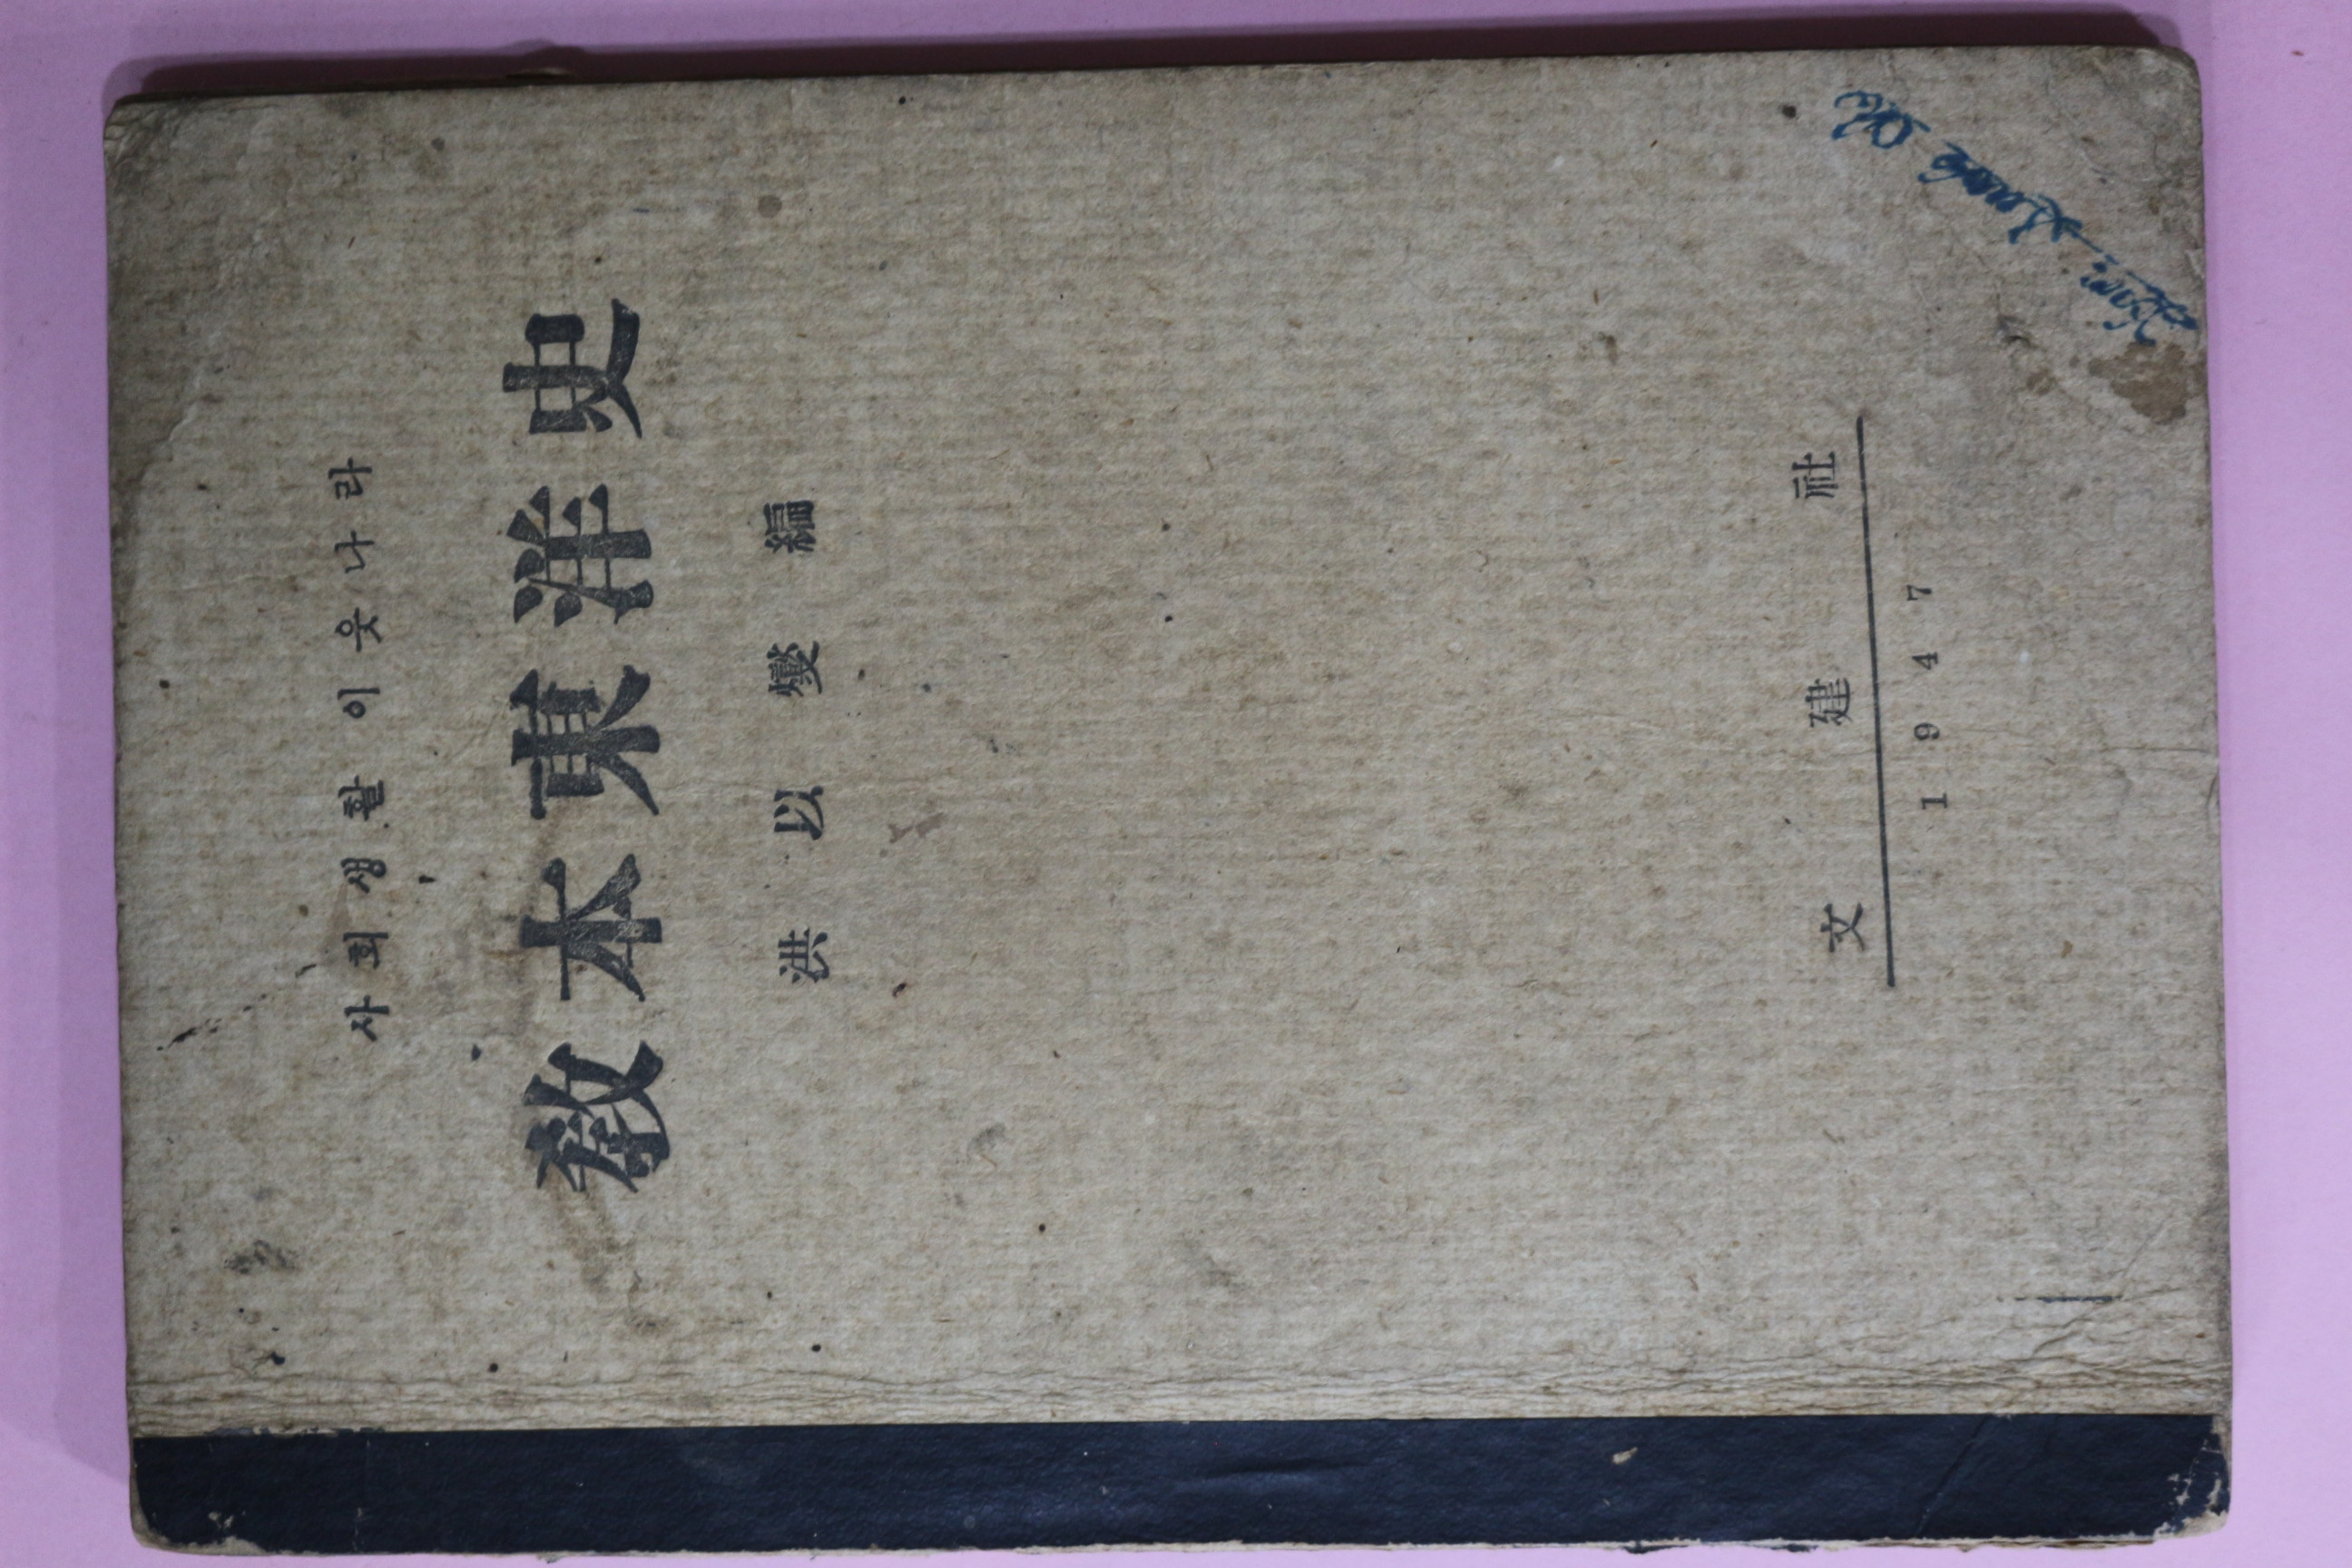 사회생활이웃나라
敎本東洋史
洪以燮編
文建社
1947